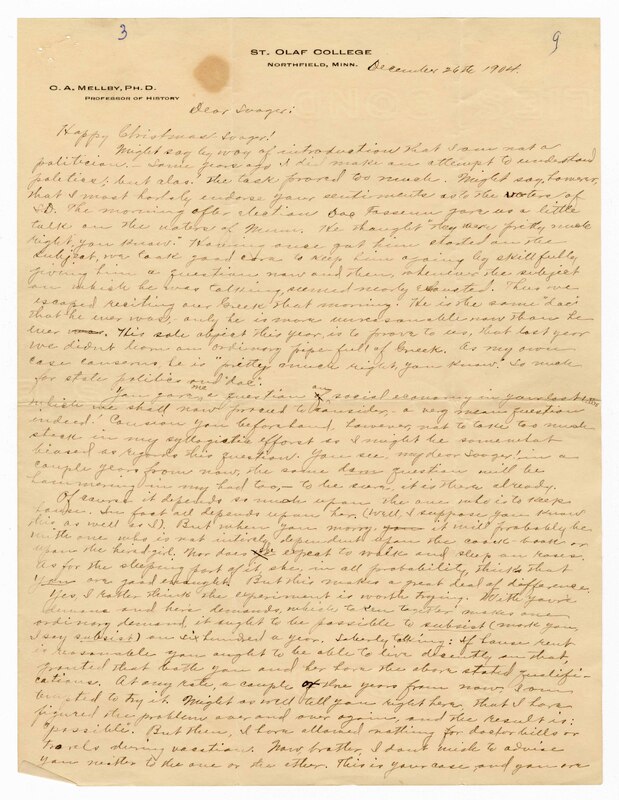 3
9
ST. OLAF COLLEGE
NORTHFIELD, MINN.
December 26th, 1904.
C. A. MELLBY, PH. D.
PROFESSOR OF HISTORY
Dear Svoger:
Happy Christmas Svoger!
Might say by way of introduction that I am not a
politician. – Some years ago I did make an attempt to understand
politics; but alas! the task proved to much. Might say, however,
that I most hartely endorse your sentiments as to the voters of
S.D. The morning after election Doc Fossum gave us a little
talk on the voters of Minn. He thought "they were pritty much
right, you know." Having once got him started on the
subject, we took good care to keep him agoing by skillfully
giving him a question now and then, whenever the subject
on which he was talking, seemed nearly exausted. Thus we
escaped resiting our Greek that morning. He is the same "doc"
that he ever was, only he is more unreasonable now than he
ever was. This sole object this year, is to prove to us, that last year
we didn't learn an ordinary pipe full of Greek. As my own
case concerns, he is "pretty much right, you know." So much
for state politics and "doc".
You gave me a question on social economy in your last letter
which we shall now proceed to consider, a very mean question
indeed! Causion you beforehand, however, not to take too much
stock in my syllogistic efforst as I might be somewhat
biased as regards this question. You see, my dear Svoger! in a
couple years from now, the same dam question will be
hammering in my had too, – to be sure, it is there already.
Of course it depends so much upon the one who is to keep
house. In fact all depends upon her. (Well, I suppose, you know
this, as well as I). But when you marry, it will probably be
with one who is not intirely dependent upon the cook-book or
upon the hired girl. Nor does she expect to walk and sleep on roses.
As for the sleeping part of it, she, in all probability, thinks that
you are good enough. But this makes a great deal of difference.
Yes, I rather think the experiment is worth trying. With your
demans and here demands, which to ken together makes an
ordinary demand, it ought to be possible to subsist (mark you,
I say subsist) on six hundred a year. Soberly talking: If house rent
is reasonable you ought to be able to live decently on that,
granted that both you and her have the above stated qualifi-
cations. At any rate, a couple or three years from now, I am
to try it. Might as well tell you right here, that I have
figured the problem over and over again, and the result is:
"possible". But then, I have allowed nothing for doctor bills or
travels during vacation. Now, brother, I don't mech to advise
you neither to the one or the other. This is your case, and you are